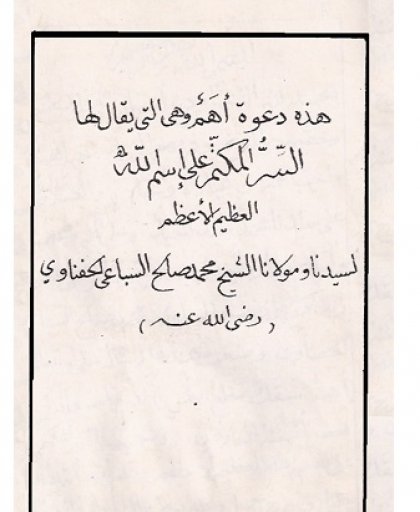 هذه دعوة أهَم وهى التى يقال لها
السِّرُّ المكتم على إسم اللّه
العظيم الأعظم
لسيدنا ومولانا الشيخ محمد صالح السباعى الحفناوي
(رضى الله عنه)